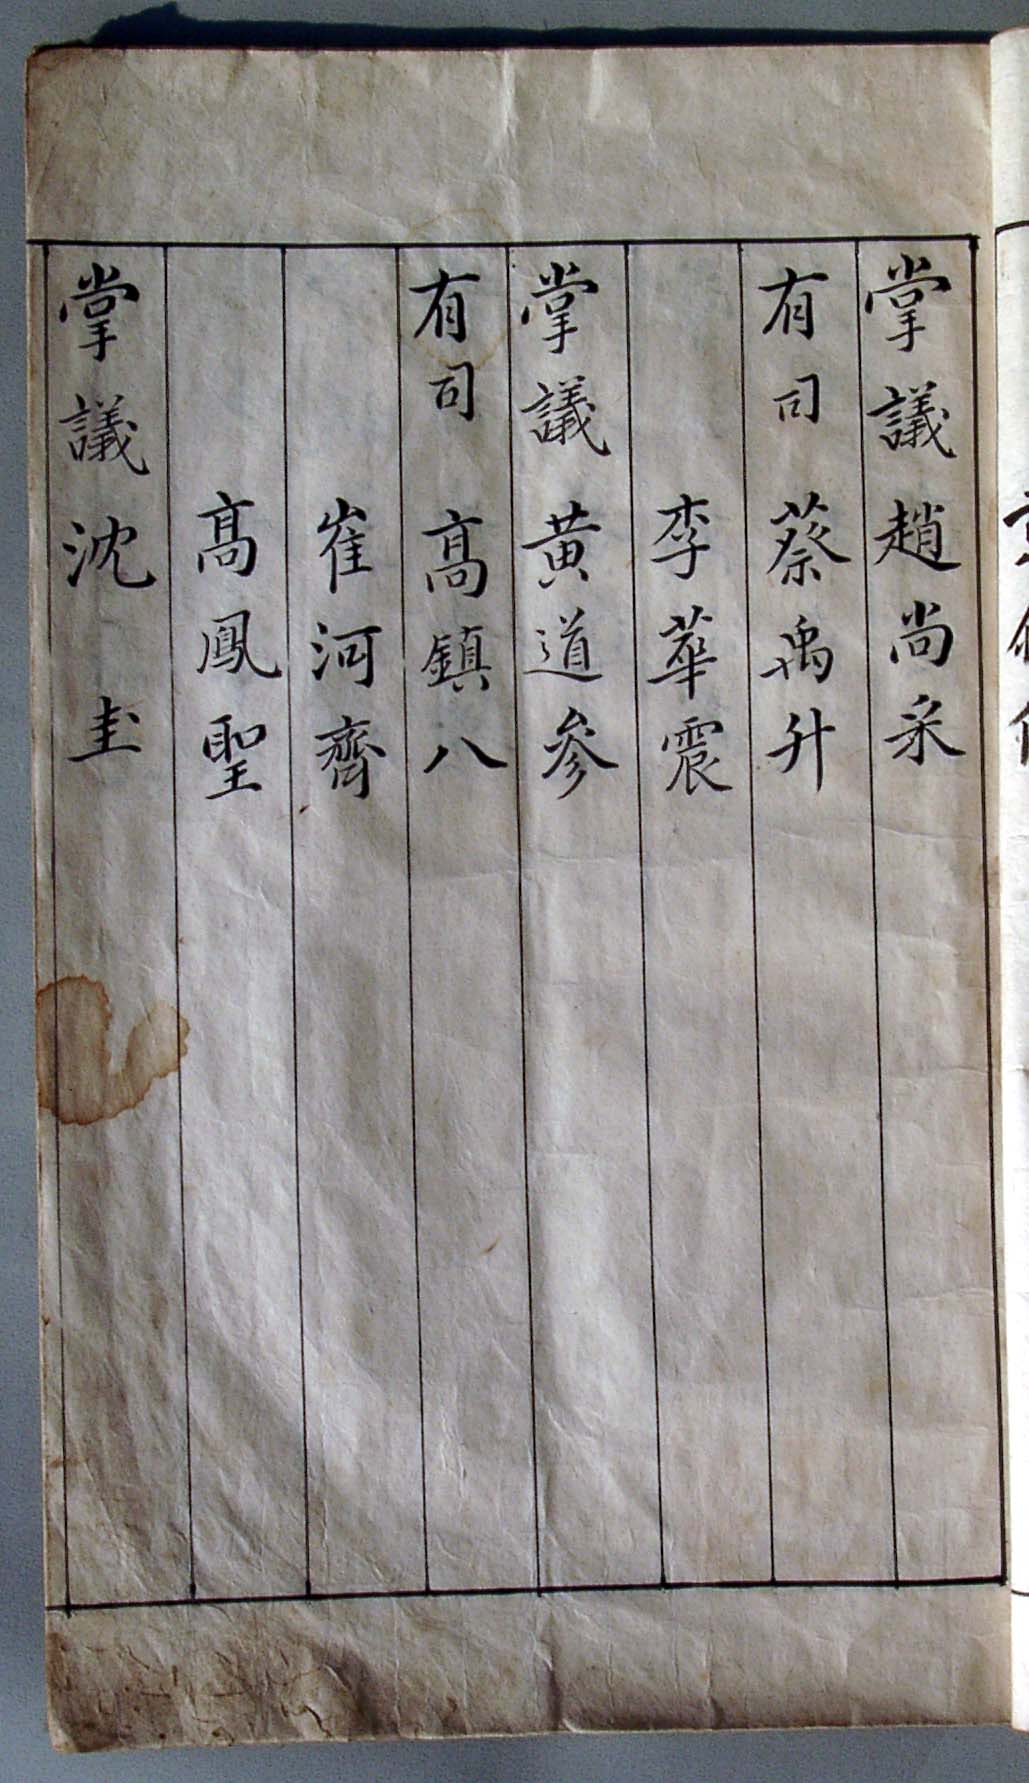 掌議 趙尚采
有司 蔡禹升
李華震
掌議 黃道參
有司 高鎮八
崔河齊
高鳳聖
掌議 沈圭